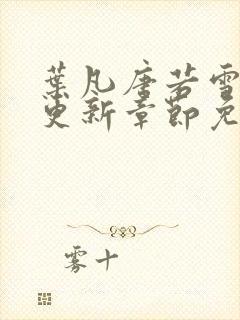 葉凡唐若雪
更新章節免
霧十